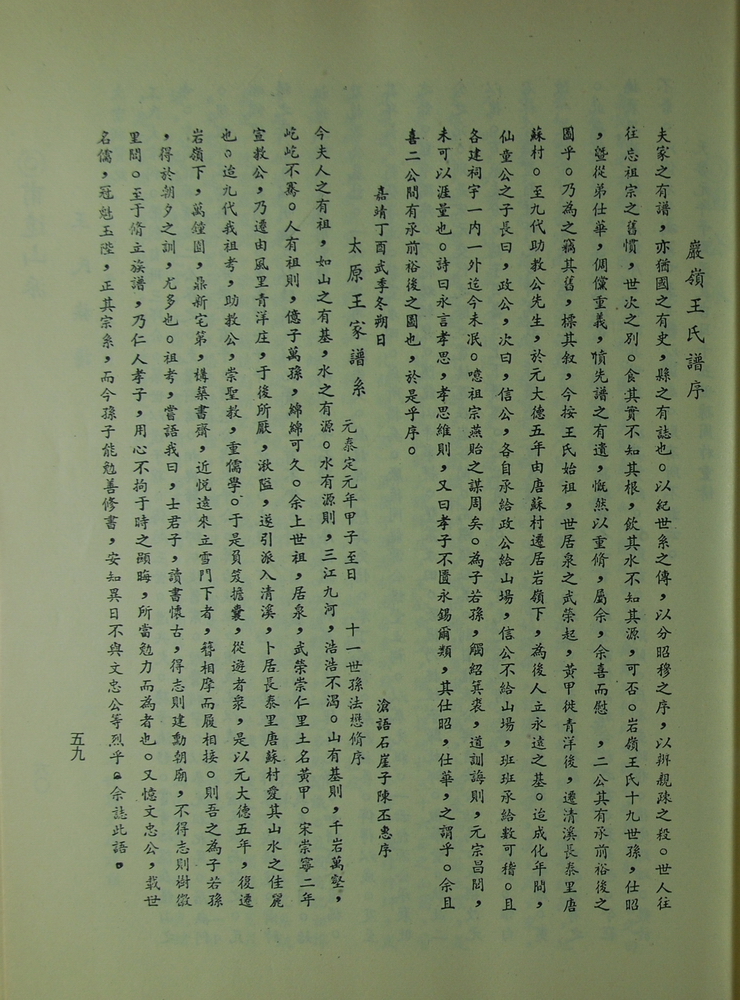 巖嶺王氏譜序
夫家之有譜，亦猶國之有史，縣之有誌也。以紀世系之傳，以分昭穆之序，以辨親疎之殺。世人往
往忘祖宗之舊慣，世次之別。食其實不知其根，飲其水不知其源，可否。岩嶺王氏十九世孫，仕昭
，暨從弟仕華，倜儻重義，憤先譜之有遺，慨然以重脩，屬余，余喜而慰　，二公其有承前裕後之
圖乎。乃為之竊其舊，採其叙，今按王氏始祖，世居泉之武榮起，黃甲徙青洋後，遷清溪長泰里唐
蘇村。至九代助教公先生，於元大德五年由唐蘇村遷居岩嶺下，為後人立永遠之基。迨成化年間，
仙童公之子長曰，政公，次曰，信公，各自承給政公給山場，信公不給山場，班班承給數可稽。且
各建祠宇一内一外迄今未泯。噫祖宗燕貽之謀周矣。為子若孫，觸紹箕裘，道訓誨則，元宗昌問，
未可以涯量也。詩曰永言孝思，孝思維則，又曰孝子不匱永錫爾類，其仕昭，仕華，之謂乎。余且
喜二公問有承前裕後之圖也，於是乎序。
嘉靖丁酉武季冬朔日　滄語石崖子陳丕惠序
太原王家譜系　元泰定元年甲子至日　十一世孫法懋脩序
今夫人之有祖，如山之有基，水之有源。水有源則，三江九河，浩浩不濁。山有基則，千岩萬壑，
屹屹不騫。人有祖則，億子萬孫，綿綿可久。余上世祖，居泉，武榮崇仁里土名黃甲。宋崇寧二年
宣教公，乃遷由風里青洋庄，于後所厭，湫隘，遂引派入清溪，卜居長泰里唐蘇村愛其山水之佳麗
也。迨九代我祖考，助教公，崇聖教，重儒學。于是員笈擔囊，從遊者衆，是以元大德五年，復遷
岩嶺下，萬鐘園，鼎新宅第，構築書齋，近悅遠來立雪門下者，簪相摩而履相接。則吾之為子若孫
，得於朝夕之訓，尤多也。祖考，嘗語我曰，士君子，讀書懷古，得志則建勳朝廟，不得志則樹徽
里閭。至于脩立族譜，乃仁人孝子，用心不拘于時之顯晦，所當勉力而為者也。又憶文忠公，載世
名儒，冠魁玉陛，正其宗系，而今孫子能勉善修書，安知異日不與文忠公等烈乎。余誌此語。
五九